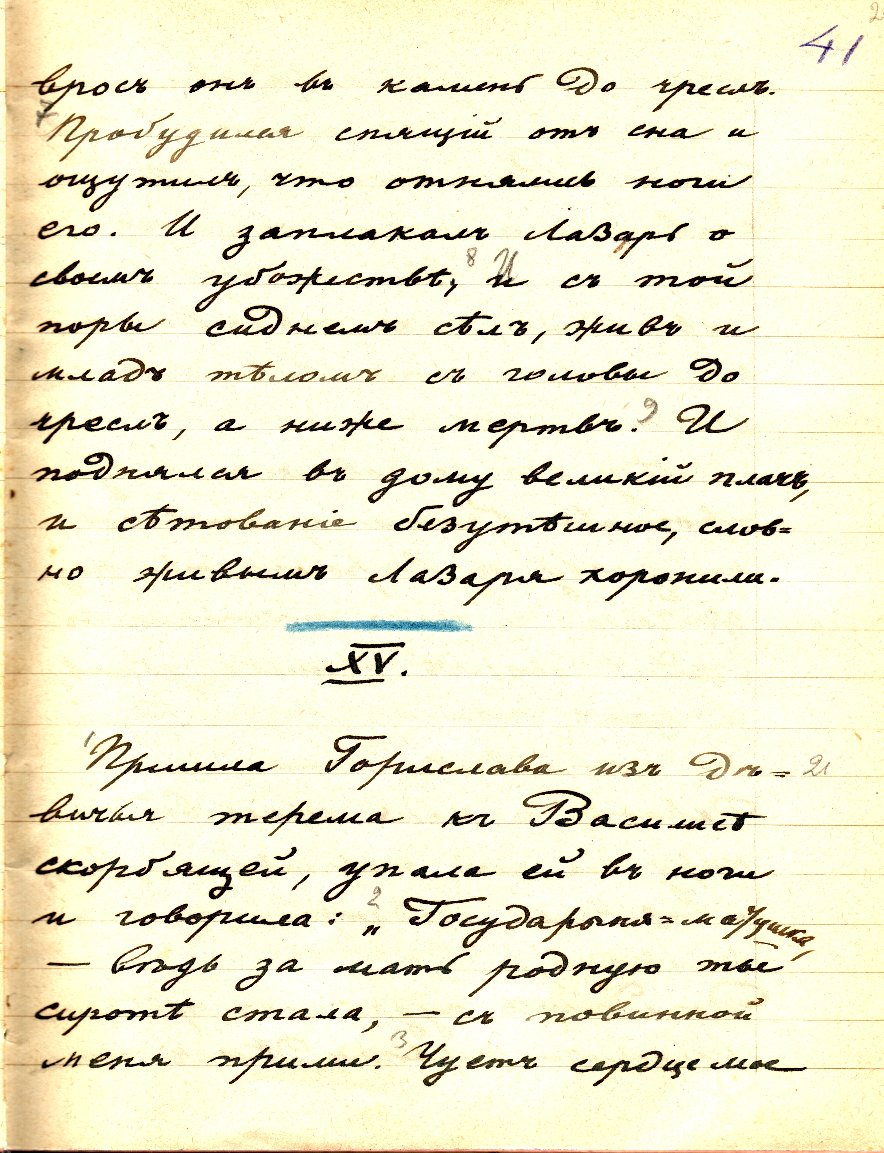 2
41
вросъ онъ въ камень до чреслъ.
7 Пробудился спящій отъ сна и
ощутилъ, что отнялись ноги
его. И заплакалъ Лазарь о
своемъ убожествѣ, 8 И и съ той
поры сиднемъ сѣлъ, живъ и
младъ тѣломъ съ головы до
чреслъ, а ниже мертвъ. 9 И
поднялся въ дому великій плачъ,
и сѣтованіе безутѣшное, слов=
но живымъ Лазаря хоронили.
XV.
1 Пришла Горислава изъ дѣ= 21
вичья терема къ Василисѣ
скорбящей, упала ей въ ноги
и говорила: 2 „Государыня=матушка,
— вѣдь за мать родную ты
сиротѣ стала, — съ повинной
меня прими. 3 Чуетъ сердце мое